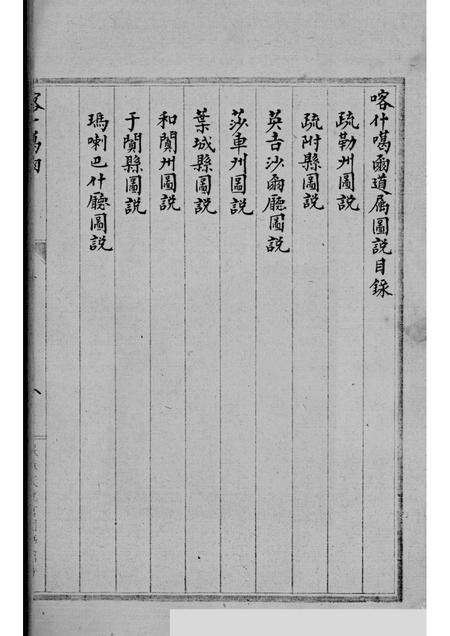 喀什噶爾道属圖說目錄
疏勒州圖說
疏附縣圖說
英吉沙爾廳圖說
莎車州圖說
葉城縣圖說
和闐州圖說
于闐縣圖說
瑪喇巴什廳圖說